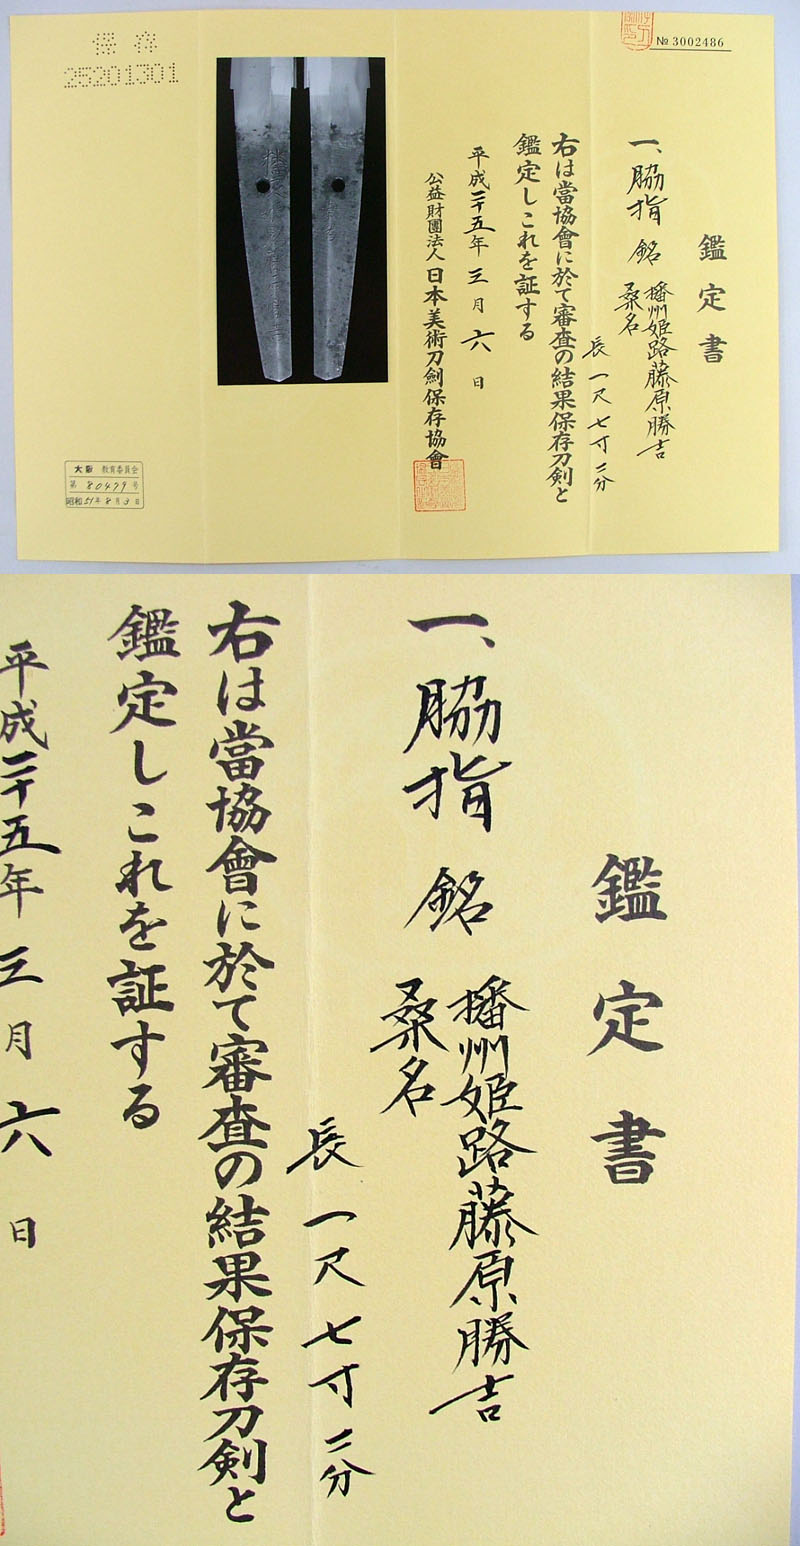 鑑定書
一、脇指 銘 播州姫路藤原勝吉
桑名
長 一尺七寸二分
右は當協會に於て審査の結果保存刀剣と
鑑定しこれを証する
平成二十五年三月六日
公益財團法人 日本美術刀劍保存協會
№ 3002486
保存
25201301
大阪 教育委員会
第 80479 号
昭和51年8月3日
鑑定書
一、脇指 銘 播州姫路藤原勝吉
桑名
長 一尺七寸二分
右は當協會に於て審査の結果保存刀剣と
鑑定しこれを証する
平成二十五年三月六日